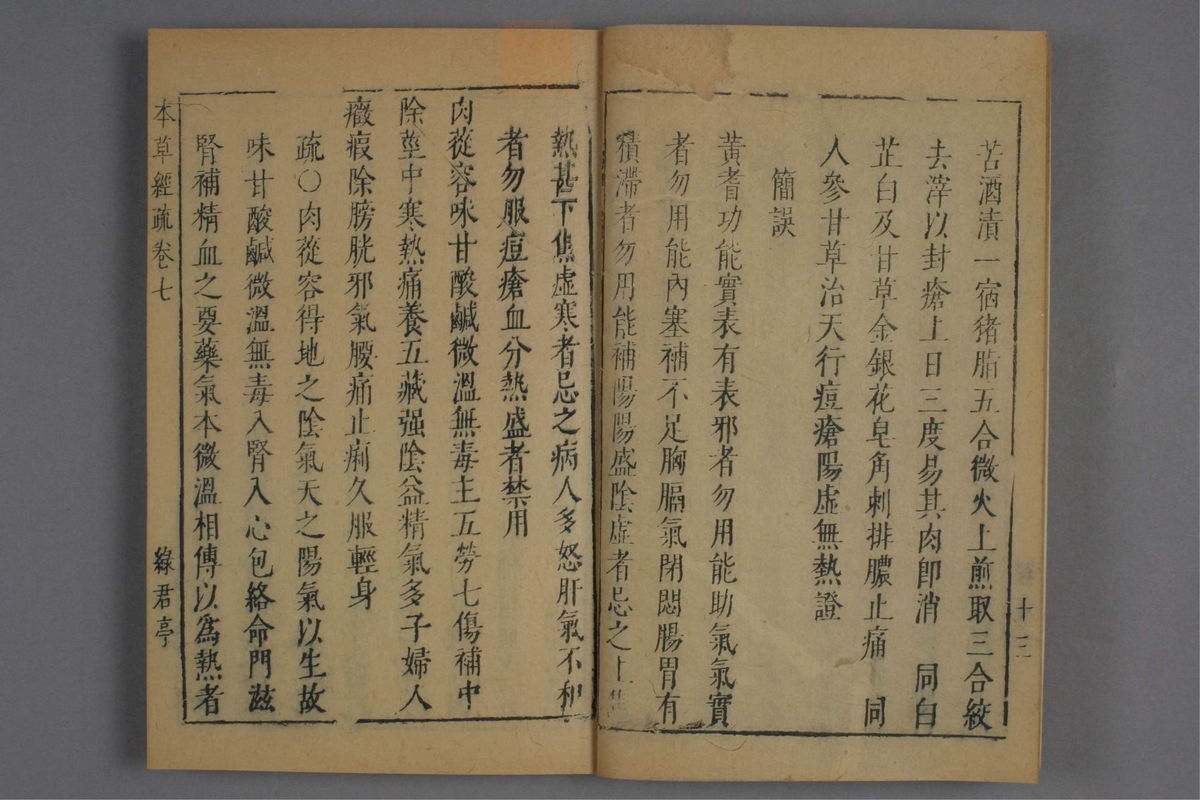 苦酒漬一宿猪脂五合微火上煎取三合絞
去滓以封瘡上日三度易其肉卽消　同白
芷白及甘草金銀花皂角刺排膿止痛　同
人參甘草治天行痘瘡陽虛無熱證
簡誤
黃耆功能實表有表邪者勿用能助氣氣實
者勿用能內塞補不足胸膈氣閉悶腸胃有
積滯者勿用能補陽陽盛陰虛者忌之上焦
十三
熱甚下焦虛寒者忌之病人多怒肝氣不和
者勿服痘瘡血分熱盛者禁用
肉蓯容味甘酸鹹微溫無毒主五勞七傷補中
除莖中寒熱痛養五藏强陰益精氣多子婦人
癥瘕除膀胱邪氣腰痛止痢久服輕身
疏〇肉蓯容得地之陰氣天之陽氣以生故
味甘酸鹹微溫無毒入腎入心包絡命門滋
腎補精血之要藥氣本微溫相傳以爲熱者
本草經疏卷七
綠君亭